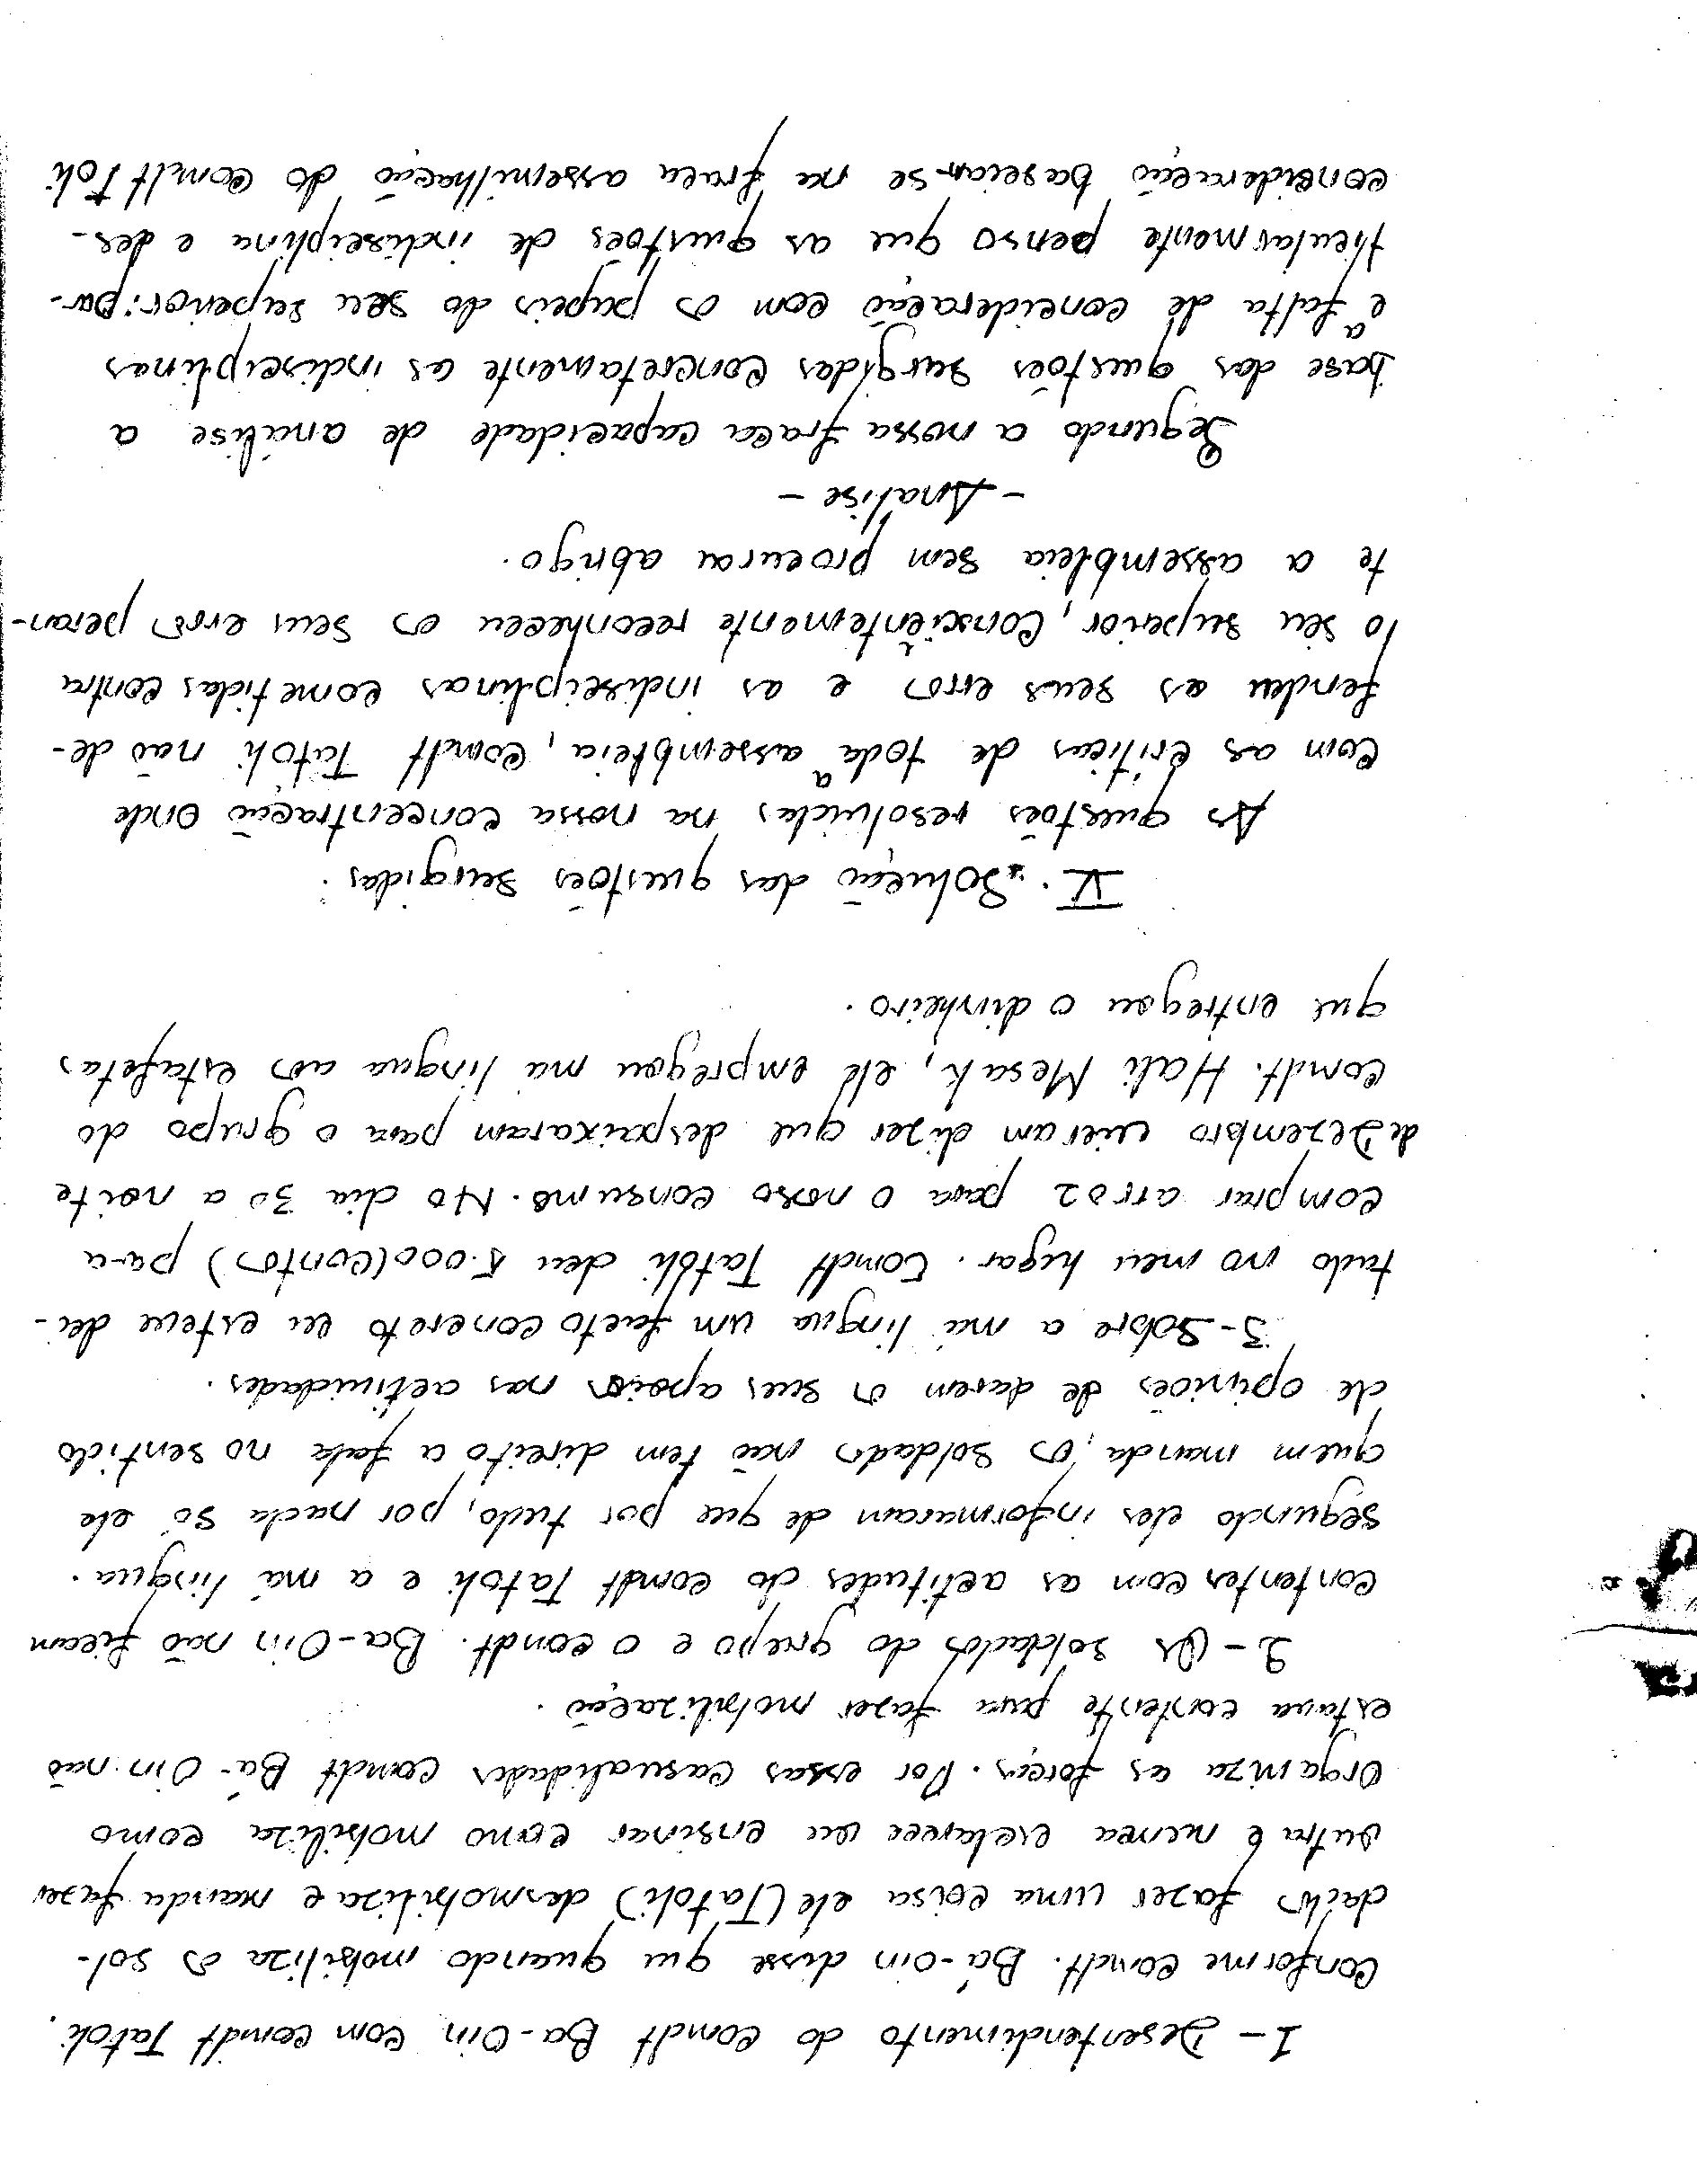 1- Desentendimento do Comdt Ba-Oin com Comdt Tatoli.
Conforme Comdt. Bá-oin disse que quando mobiliza os sol-
dados fazer uma coisa ele (Tatoli) desmobiliza e manda fazer
outra e nunca esclarece ou ensinar como mobiliza como
organiza as forças. Por essas casualidades Comdt Bá-Oin não
estava contente para fazer mobilização.
2- Os soldados do grupo e o Comdt. Ba-Oin não ficam
contentes com as actitudes do Comdt Tatoli e a má língua.
segundo eles informaram de que por tudo, por nada só ele
quem manda, os soldados não tem direito a fala no sentido
de opiniões de darem os seus apoios nas actividades.
3- Sobre a má língua um facto concreto eu esteve dei-
tado no meu lugar. Comdt Tatoli deu 5.000 (contos) para
comprar arroz para o nosso consumo. No dia 30 a noite
de Dezembro vieram dizer que despaixaram para o grupo do
Comdt. Hali Mesak, ele empregou má língua aos estafetas
que entregou o dinheiro.
V. Solução das questões surgidas.
As questões resolvidas na nossa concentração onde
com as críticas de toda a assembleia, Comdt Tatoli não de-
fendeu os seus erros e as indisciplinas cometidas contra
o seu superior, Conscientemente reconheceu os seus erros peran-
te a assembleia sem procurar abrigo.
- Analise -
Segundo a nossa fraca capacidade de análise a
base das questões surgidas concretamente as indisciplinas
e a falta de concideração com os papeis do seu superior; par-
ticularmente penso que as questões de indisciplina e des-
concideração baseiam-se na fraca assemilhação do Comdt Toli